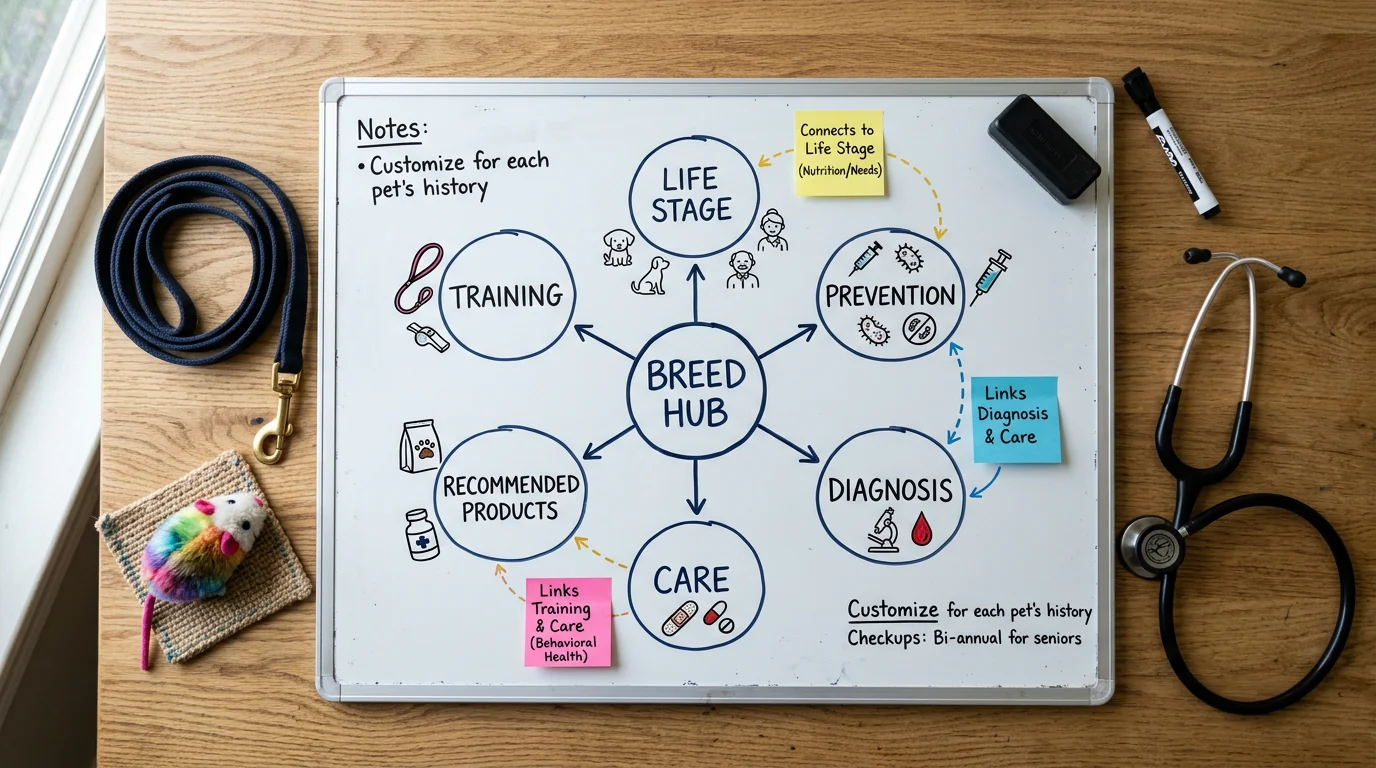 Notes:
• Customize for each
pet's history
LIFE
STAGE
Connects to
Life Stage
(Nutrition/Needs)
TRAINING
PREVENTION
BREED
HUB
Links
Diagnosis
& Care
RECOMMENDED
PRODUCTS
DIAGNOSIS
CARE
Links
Training
& Care
(Behavioral
Health)
Customize for each pet's history
Checkups: Bi-annual for seniors